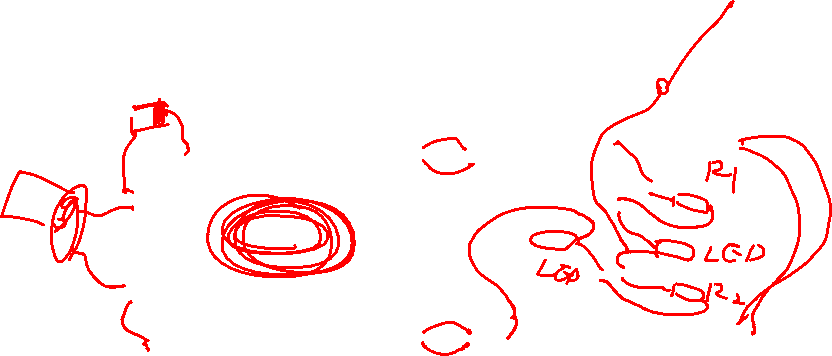 R1
LED
LED
R2